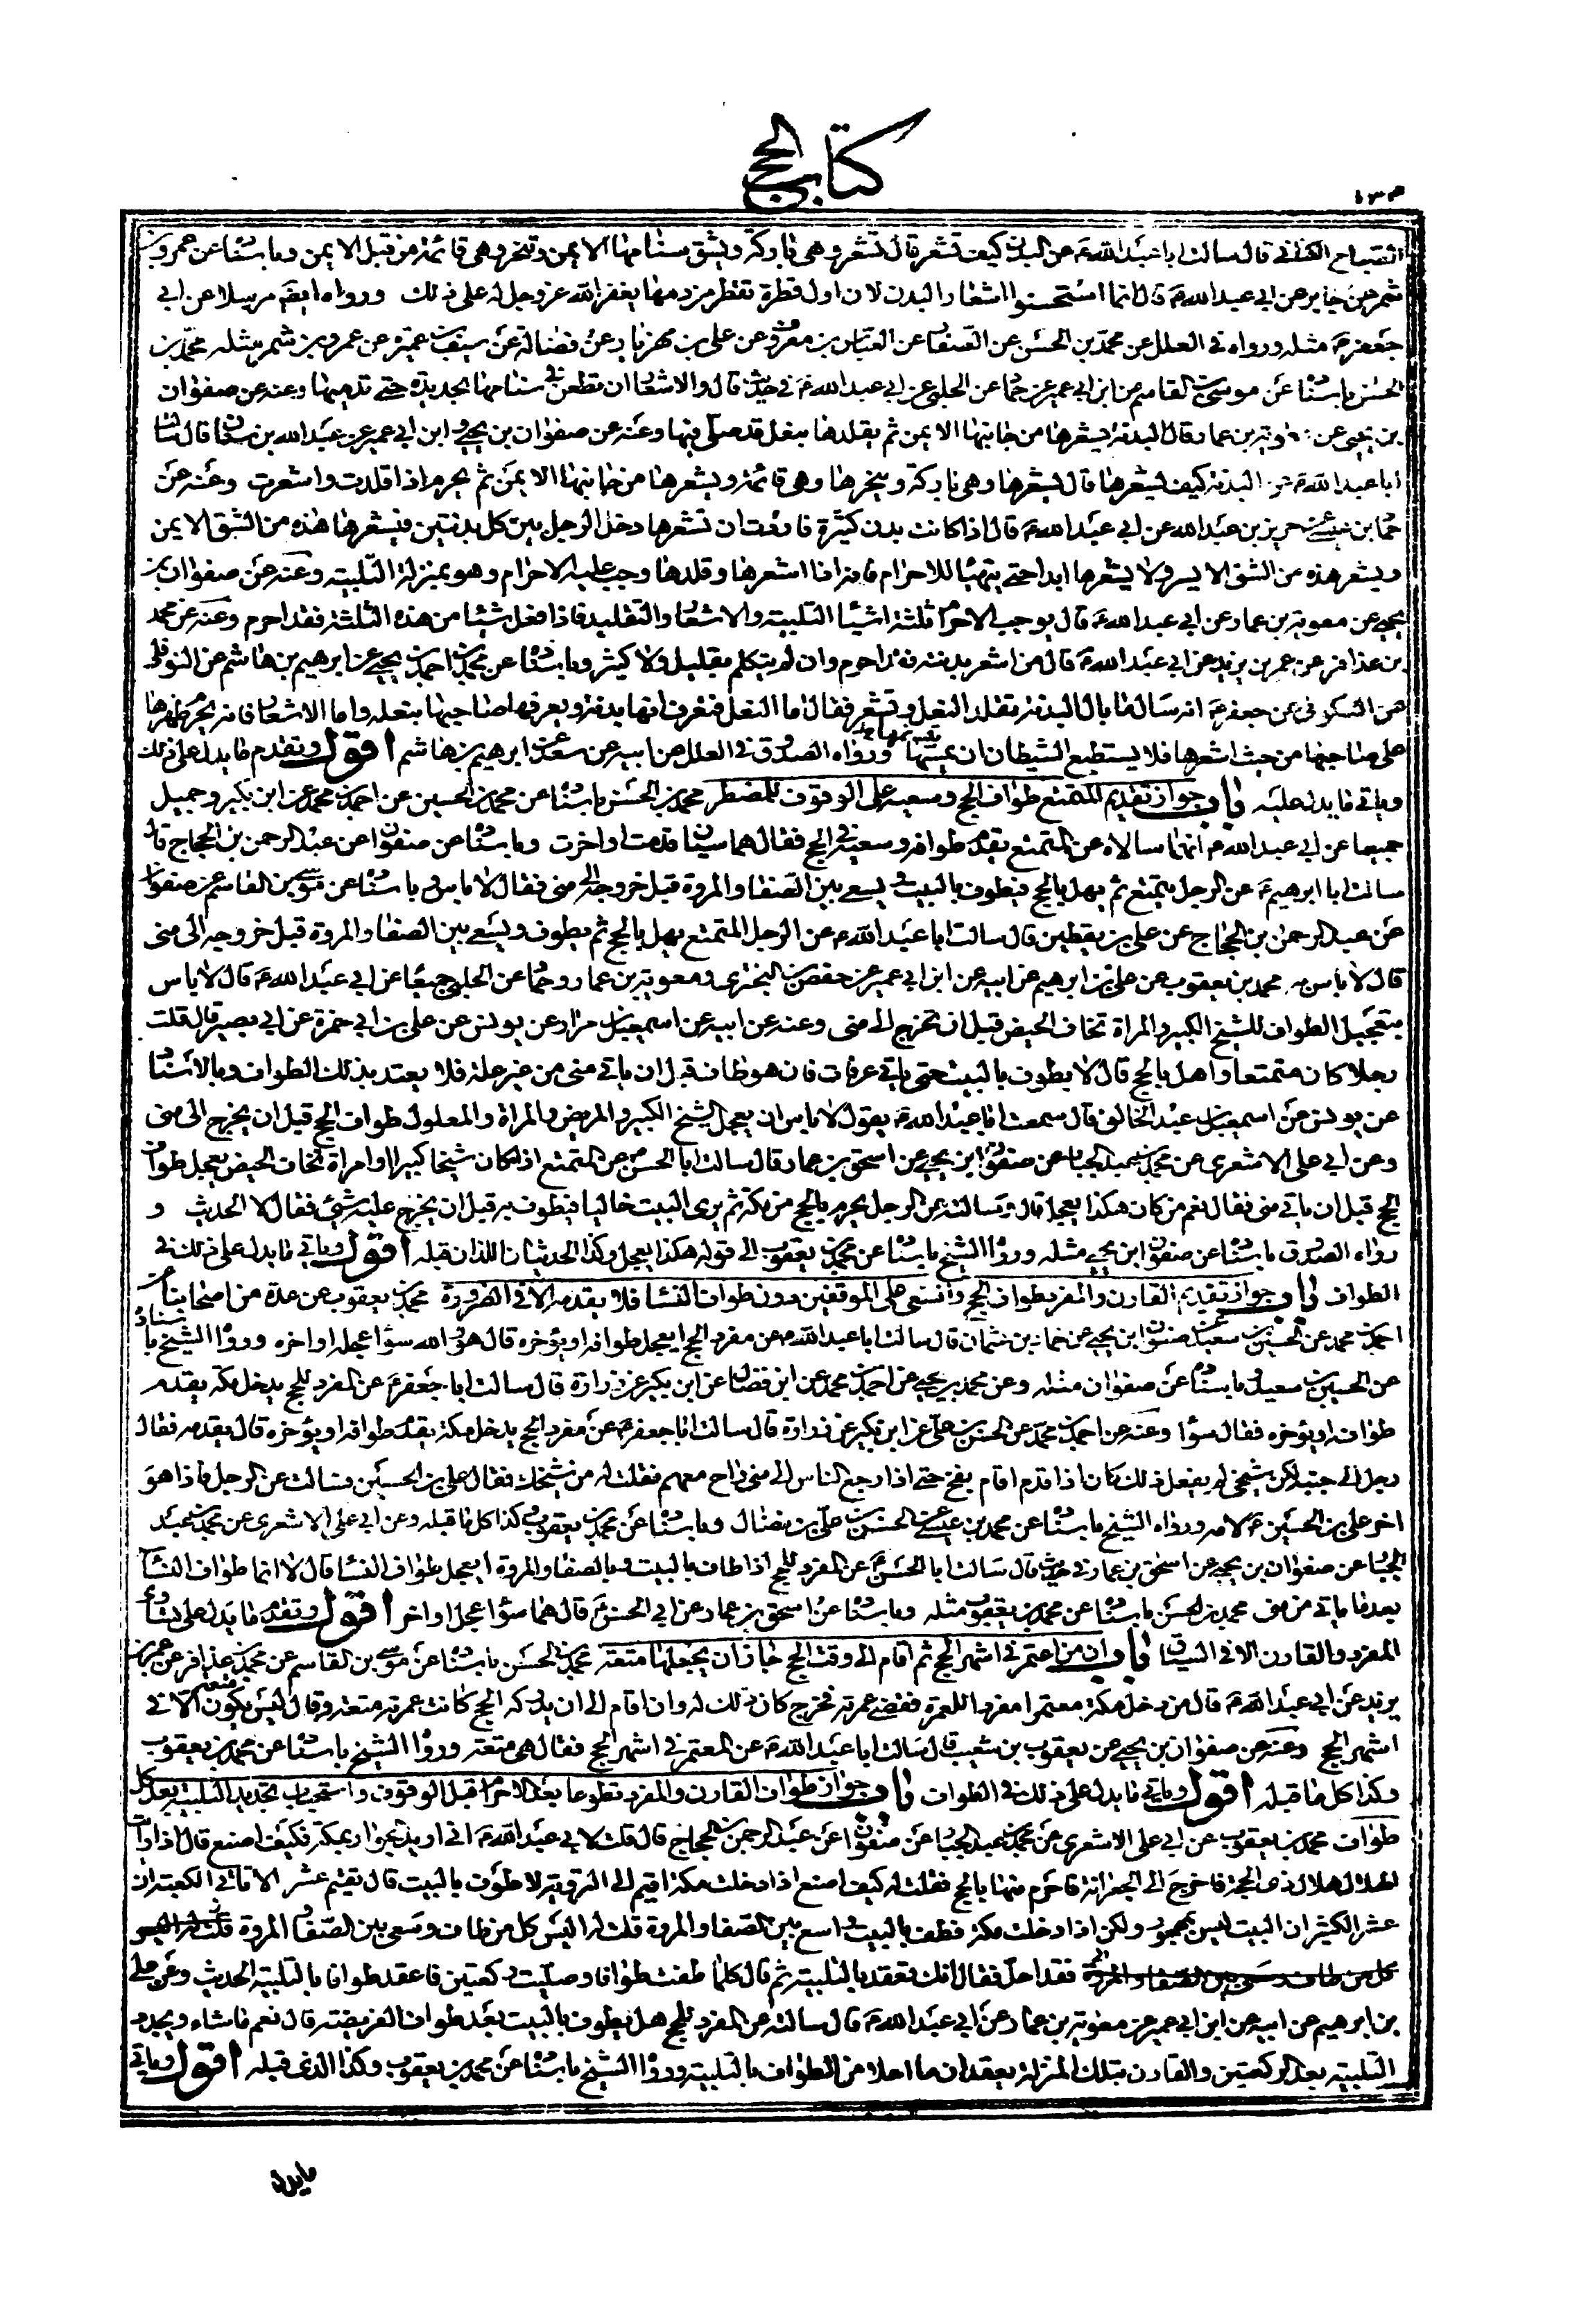 كتاب الحج
١٣٠
الصباح الكناني قال سالت ابا عبد الله ع عن البدن كيف تشعر قال تشعر وهي باركة ويشق سنامها الايمن وتنحر وهي قائمة من قبل الايمن وباسناده عن عمرو بن
شمر عن جابر عن ابي عبد الله ع قال انما استحسنوا اشعار البدن لان اول قطرة تقطر من دمها يغفر الله عز وجل له على ذلك ورواه ايضا مرسلا عن ابي
جعفر ع مثله ورواه في العلل عن محمد بن الحسن عن الصفار عن العباس بن معروف عن علي بن مهزيار عن فضالة عن سيف بن عميرة عن عمرو بن شمر مثله محمد بن
الحسن باسناده عن موسى بن القاسم عن ابن ابي عمير عن حماد عن الحلبي عن ابي عبد الله ع في حديث قال والاشعار ان تطعن في سنامها بحديدة حتى تدميها وعنه عن صفوان
بن يحيى عن معوية بن عمار قال البدنة يشعرها من جانبها الايمن ثم يقلدها بنعل قد صلى فيها وعنه عن صفوان بن يحيى وابن ابي عمير عن عبد الله بن سنان قال سالت
ابا عبد الله ع عن البدنة كيف يشعرها قال يشعرها وهي باركة وينحرها وهي قائمة ويشعرها من جانبها الايمن ثم يحرم اذا قلدت واشعرت وعنه عن
حماد بن عيسى عن حريز بن عبد الله عن ابي عبد الله ع قال اذا كانت بدن كثيرة فاردت ان تشعرها دخل الرجل بين كل بدنتين فيشعر هذه من الشق الايمن
ويشعر هذه من الشق الايسر ولا يشعرها ابدا حتى يتهيا للاحرام فانه اذا اشعرها وقلدها وجب عليه الاحرام وهو بمنزلة التلبية وعنه عن صفوان بن
يحيى عن معوية بن عمار عن ابي عبد الله ع قال يوجب الاحرام ثلثة اشياء التلبية والاشعار والتقليد فاذا فعل شيئا من هذه الثلثة فقد احرم وعنه عن محمد
بن عذافر عن عمر بن يزيد عن ابي عبد الله ع قال من اشعر بدنته فقد احرم وان لم يتكلم بقليل ولا كثير وباسناده عن محمد بن احمد بن يحيى عن ابرهيم بن هاشم عن النوفلي
عن السكوني عن جعفر ع انه سال ما بال البدنة تقلد النعل وتشعر فقال اما النعل فتعرف انها بدنة ويعرفها صاحبها بنعله واما الاشعار فانه يحرم ظهرها
على صاحبها من حيث اشعرها فلا يستطيع الشيطان ان يتسنمها ورواه الصدوق في العلل عن ابيه عن سعد عن ابرهيم بن هاشم اقول وتقدم ما يدل على ذلك
وياتي ما يدل عليه باب جواز تقديم المتمتع طواف الحج وسعيه على الوقوف للمضطر محمد بن الحسن باسناده عن محمد بن الحسين عن احمد بن محمد عن ابن بكير وجميل
جميعا عن ابي عبد الله ع انهما سالاه عن المتمتع يقدم طوافه وسعيه في الحج فقال هما سيان قدمت او اخرت وباسناده عن صفوان عن عبد الرحمن بن الحجاج قال
سالت ابا ابرهيم ع عن الرجل يتمتع ثم يهل بالحج فيطوف بالبيت ويسعى بين الصفا والمروة قبل خروجه الى منى فقال لا باس وباسناده عن موسى بن القاسم عن صفوان
عن عبد الرحمن بن الحجاج عن علي بن يقطين قال سالت ابا عبد الله ع عن الرجل المتمتع يهل بالحج ثم يطوف ويسعى بين الصفا والمروة قبل خروجه الى منى
قال لا باس به محمد بن يعقوب عن علي بن ابرهيم عن ابيه عن ابن ابي عمير عن حفص بن البختري ومعوية بن عمار وحماد عن الحلبي جميعا عن ابي عبد الله ع قال لا باس
بتعجيل الطواف للشيخ الكبير والمراة تخاف الحيض قبل ان تخرج الى منى وعنه عن ابيه عن اسمعيل بن مرار عن يونس عن علي بن ابي حمزة عن ابي بصير قال قلت
رجل كان متمتعا واهل بالحج قال لا يطوف بالبيت حتى ياتي عرفات فان هو طاف قبل ان ياتي منى من غير علة فلا يعتد بذلك الطواف وبالاسناد
عن يونس عن اسمعيل بن عبد الخالق قال سمعت ابا عبد الله ع يقول لا باس ان يعجل الشيخ الكبير والمريض والمراة والمعلول طواف الحج قبل ان يخرج الى منى
وعن ابي علي الاشعري عن محمد بن عبد الجبار عن صفوان ابن يحيى عن اسحق بن عمار قال سالت ابا الحسن ع عن المتمتع اذا كان شيخا كبيرا او امراة تخاف الحيض يعجل طواف
الحج قبل ان ياتي منى فقال نعم من كان هكذا يعجل قال وسالته عن الرجل يحرم بالحج من مكة ثم يرى البيت خاليا فيطوف به قبل ان يخرج عليه شيء فقال لا الحديث و
رواه الصدوق باسناده عن صفوان ابن يحيى مثله ورواه الشيخ باسناده عن محمد بن يعقوب الى قوله هكذا يعجل وكذا الحديثان اللذان قبله اقول وياتي ما يدل على ذلك في
الطواف باب جواز تقديم القارن والمفرد طواف الحج والسعي على الموقفين دون طواف النساء فلا يقدمه الا في الضرورة محمد بن يعقوب عن عدة من اصحابنا عن
احمد بن محمد عن الحسين بن سعيد عن صفوان ابن يحيى عن حماد بن عثمان قال سالت ابا عبد الله ع عن مفرد الحج ايعجل طوافه او يؤخره قال هو والله سواء عجله او اخره ورواه الشيخ باسناده
عن الحسين بن سعيد وباسناده عن صفوان مثله وعن محمد بن يحيى عن احمد بن محمد عن ابن فضال عن ابن بكير عن زرارة قال سالت ابا جعفر ع عن المفرد للحج يدخل مكة يقدم
طوافه او يؤخره فقال سواء وعنه عن احمد بن محمد عن الحسن بن علي عن ابن بكير عن زرارة قال سالت ابا جعفر ع عن مفرد الحج يدخل مكة يقدم طوافه او يؤخره قال يقدمه فقال
رجل الى جنبه لكن شيخي لم يفعل ذلك كان اذا قدم اقام بفخ حتى اذا رجع الناس الى منى راح معهم فقلت له من شيخك فقال علي بن الحسين فسالت عن الرجل فاذا هو
اخو علي بن الحسين ع لامه ورواه الشيخ باسناده عن محمد بن عيسى عن الحسن بن علي بن فضال وباسناده عن محمد بن يعقوب وكذا كل ما قبله وعن ابي علي الاشعري عن محمد بن عبد
الجبار عن صفوان بن يحيى عن اسحق بن عمار في حديث قال سالت ابا الحسن ع عن المفرد للحج اذا طاف بالبيت وبالصفا والمروة ايعجل طواف النساء قال لا انما طواف النساء
بعد ما ياتي من منى محمد بن الحسن باسناده عن محمد بن يعقوب مثله وباسناده عن اسحق بن عمار عن ابي الحسن ع قال هما سواء عجل او اخر اقول وتقدم ما يدل على تساوي
المفرد والقارن الا في السياق باب ان من اعتمر في اشهر الحج ثم اقام الى وقت الحج جاز ان يجعلها متعة محمد بن الحسن باسناده عن موسى بن القاسم عن محمد بن عذافر عن عمر بن
يزيد عن ابي عبد الله ع قال من دخل مكة معتمرا مفردا للعمرة فقضى عمرته فخرج كان ذلك له وان اقام الى ان يدركه الحج كانت عمرته متعة وقال ليس يكون متعة الا في
اشهر الحج وعنه عن صفوان بن يحيى عن يعقوب بن شعيب قال سالت ابا عبد الله ع عن المعتمر في اشهر الحج فقال هي متعة ورواه الشيخ باسناده عن محمد بن يعقوب
وكذا كل ما قبله اقول وياتي ما يدل على ذلك في الطواف باب جواز طواف القارن والمفرد تطوعا بعد الاحرام قبل الوقوف واستحباب تجديد التلبية بعد كل
طواف محمد بن يعقوب عن ابي علي الاشعري عن محمد بن عبد الجبار عن صفوان عن عبد الرحمن بن الحجاج قال قلت لابي عبد الله ع اني اريد الجوار بمكة فكيف اصنع قال اذا رايت
الهلال هلال ذي الحجة فاخرج الى الجعرانة فاحرم منها بالحج فقلت له كيف اصنع اذا دخلت مكة اقيم الى التروية لا اطوف بالبيت قال تقيم عشرا لا تاتي الكعبة ان
عشرا لكثير ان البيت ليس بمهجور ولكن اذا دخلت مكة فطف بالبيت واسع بين الصفا والمروة قلت له اليس كل من طاف وسعى بين الصفا والمروة قلت له اليس
كل من طاف وسعى بين الصفا والمروة فقد احل فقال انك تعقد بالتلبية ثم قال كلما طفت طوافا وصليت ركعتين فاعقد طوافا بالتلبية الحديث وعن علي
بن ابرهيم عن ابيه عن ابن ابي عمير عن معوية بن عمار عن ابي عبد الله ع قال سالته عن المفرد للحج هل يطوف بالبيت بعد طواف الفريضة قال نعم ما شاء ويجدد
التلبية بعد الركعتين والقارن بتلك المنزلة يعقدان ما احلا من الطواف بالتلبية ورواه الشيخ باسناده عن محمد بن يعقوب وكذا الذي قبله اقول وياتي
ما يدل